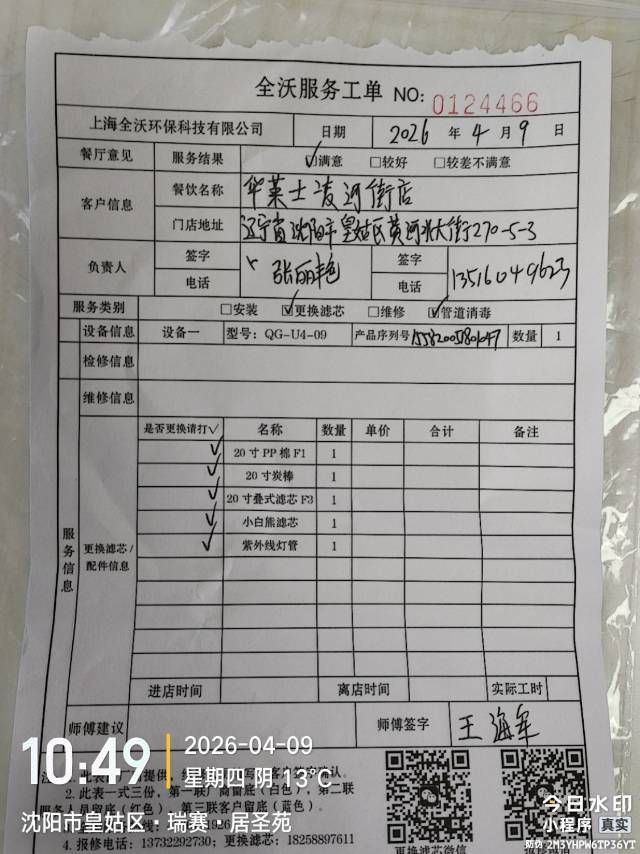 全沃服务工单 NO: 0124466
上海全沃环保科技有限公司 日期 2026 年 4 月 9 日
餐厅意见 服务结果 ☑满意 □较好 □较差不满意
客户信息 餐饮名称 华莱士凌河街店
门店地址 辽宁省沈阳市皇姑区黄河北大街270-5-3
负责人 签字 张丽艳 签字
电话 电话 13516049623
服务类别 □安装 ☑更换滤芯 □维修 ☑管道消毒
设备信息 设备一 型号: QG-U4-09 产品序列号 数量 1
检修信息
维修信息
服务信息 更换滤芯/配件信息
是否更换请打√ 名称 数量 单价 合计 备注
√ 20寸PP棉F1 1
√ 20寸炭棒 1
√ 20寸叠式滤芯F3 1
√ 小白熊滤芯 1
√ 紫外线灯管 1
进店时间 离店时间 实际工时
师傅建议 师傅签字 王海军
2. 此表一式三份, 第一联厂商留底(白色), 第二联
服务人员留底(红色), 第三联客户留底(蓝色)。
4. 报修电话: 13732292730; 更换滤芯: 18258897611
微信
10:49
2026-04-09
星期四 阴 13℃
沈阳市皇姑区·瑞赛·居圣苑
今日水印
小程序 真实
防伪 2M3YHPW6TP36YT